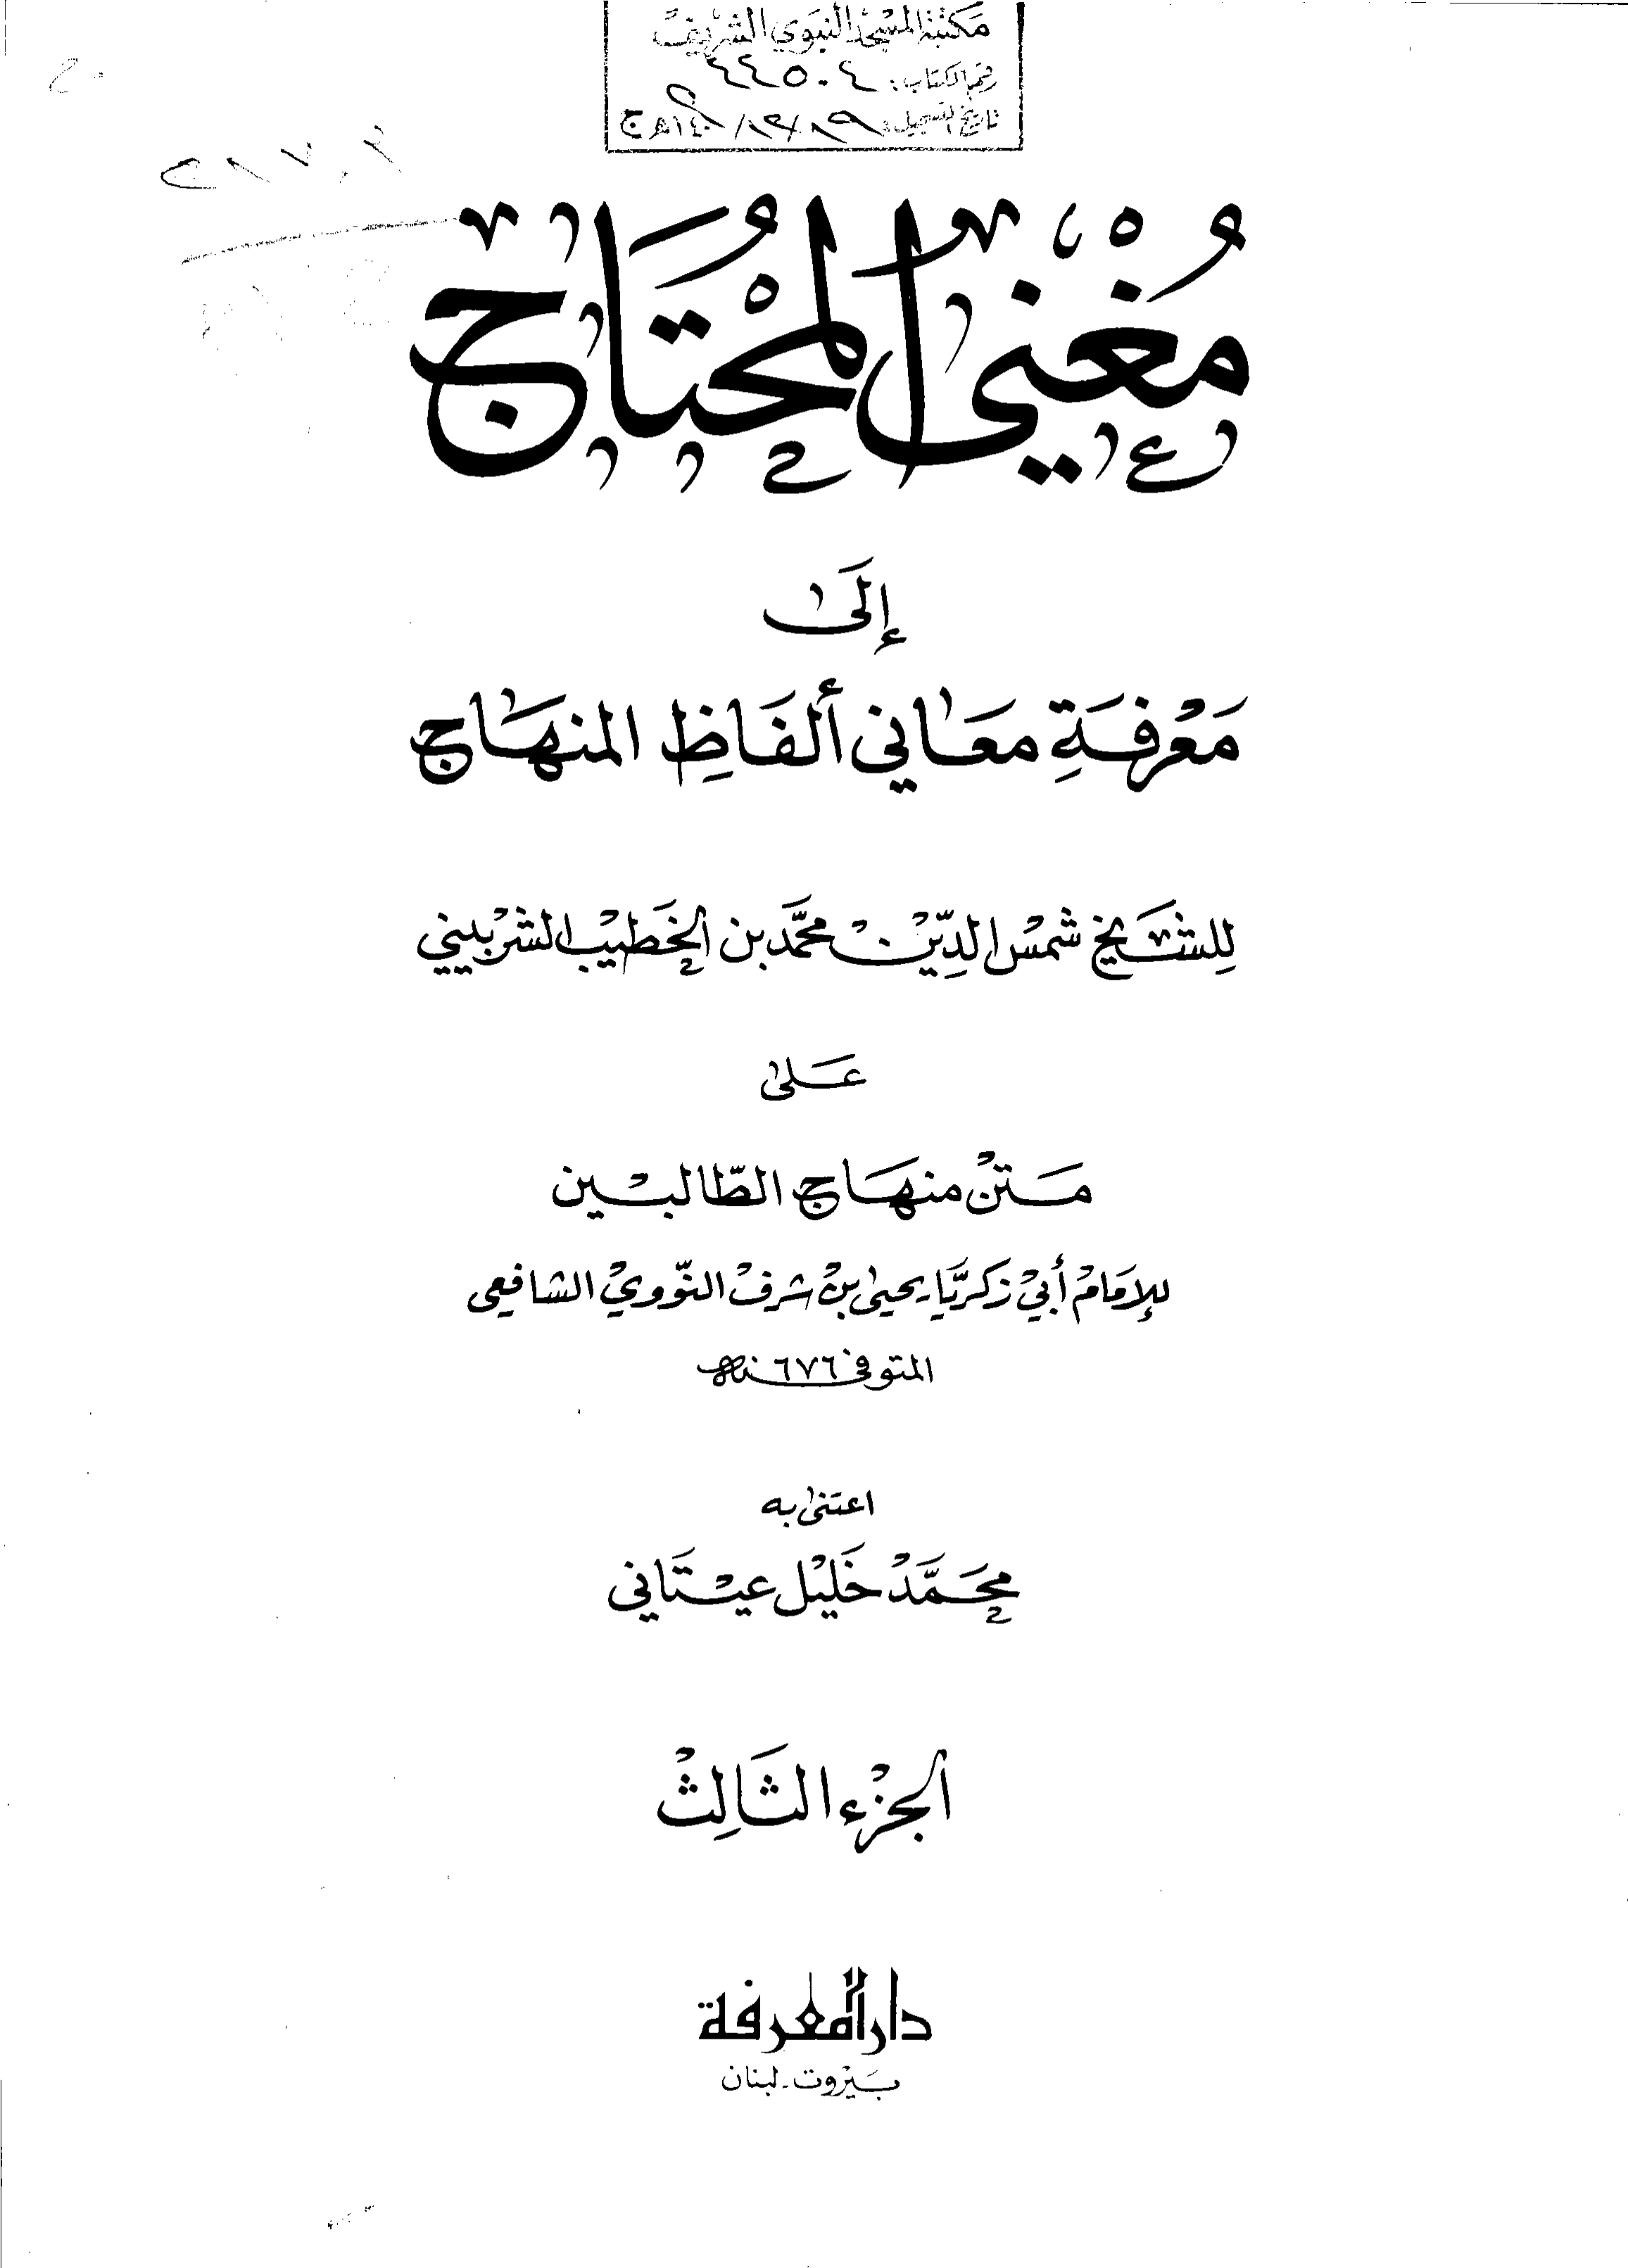 مكتبة المسجد النبوي الشريف
رقم الكتاب: ٤٤٥٠٤
تاريخ التسجيل:
مُغْنِي المُحْتَاج
إلَى
مَعْرفَةِ مَعَاني ألفَاظِ المنهَاج
لِلشَّيْخ شَمسْ الدِّينْ محمَّد بن الخَطيبْ الشربيْني
عَلى
مَتنْ منهَاج الطّالبين
للإمَامْ أبيْ زكريَّا يحيىٰ بنْ شرفْ النّوويْ الشافعي
المتوفى ٦٧٦ هـ
اعتنى به
محَمَّدْ خَليْل عيْتَاني
الجزْء الثَالِثْ
دار المعرفة
بَيْروت - لبنان